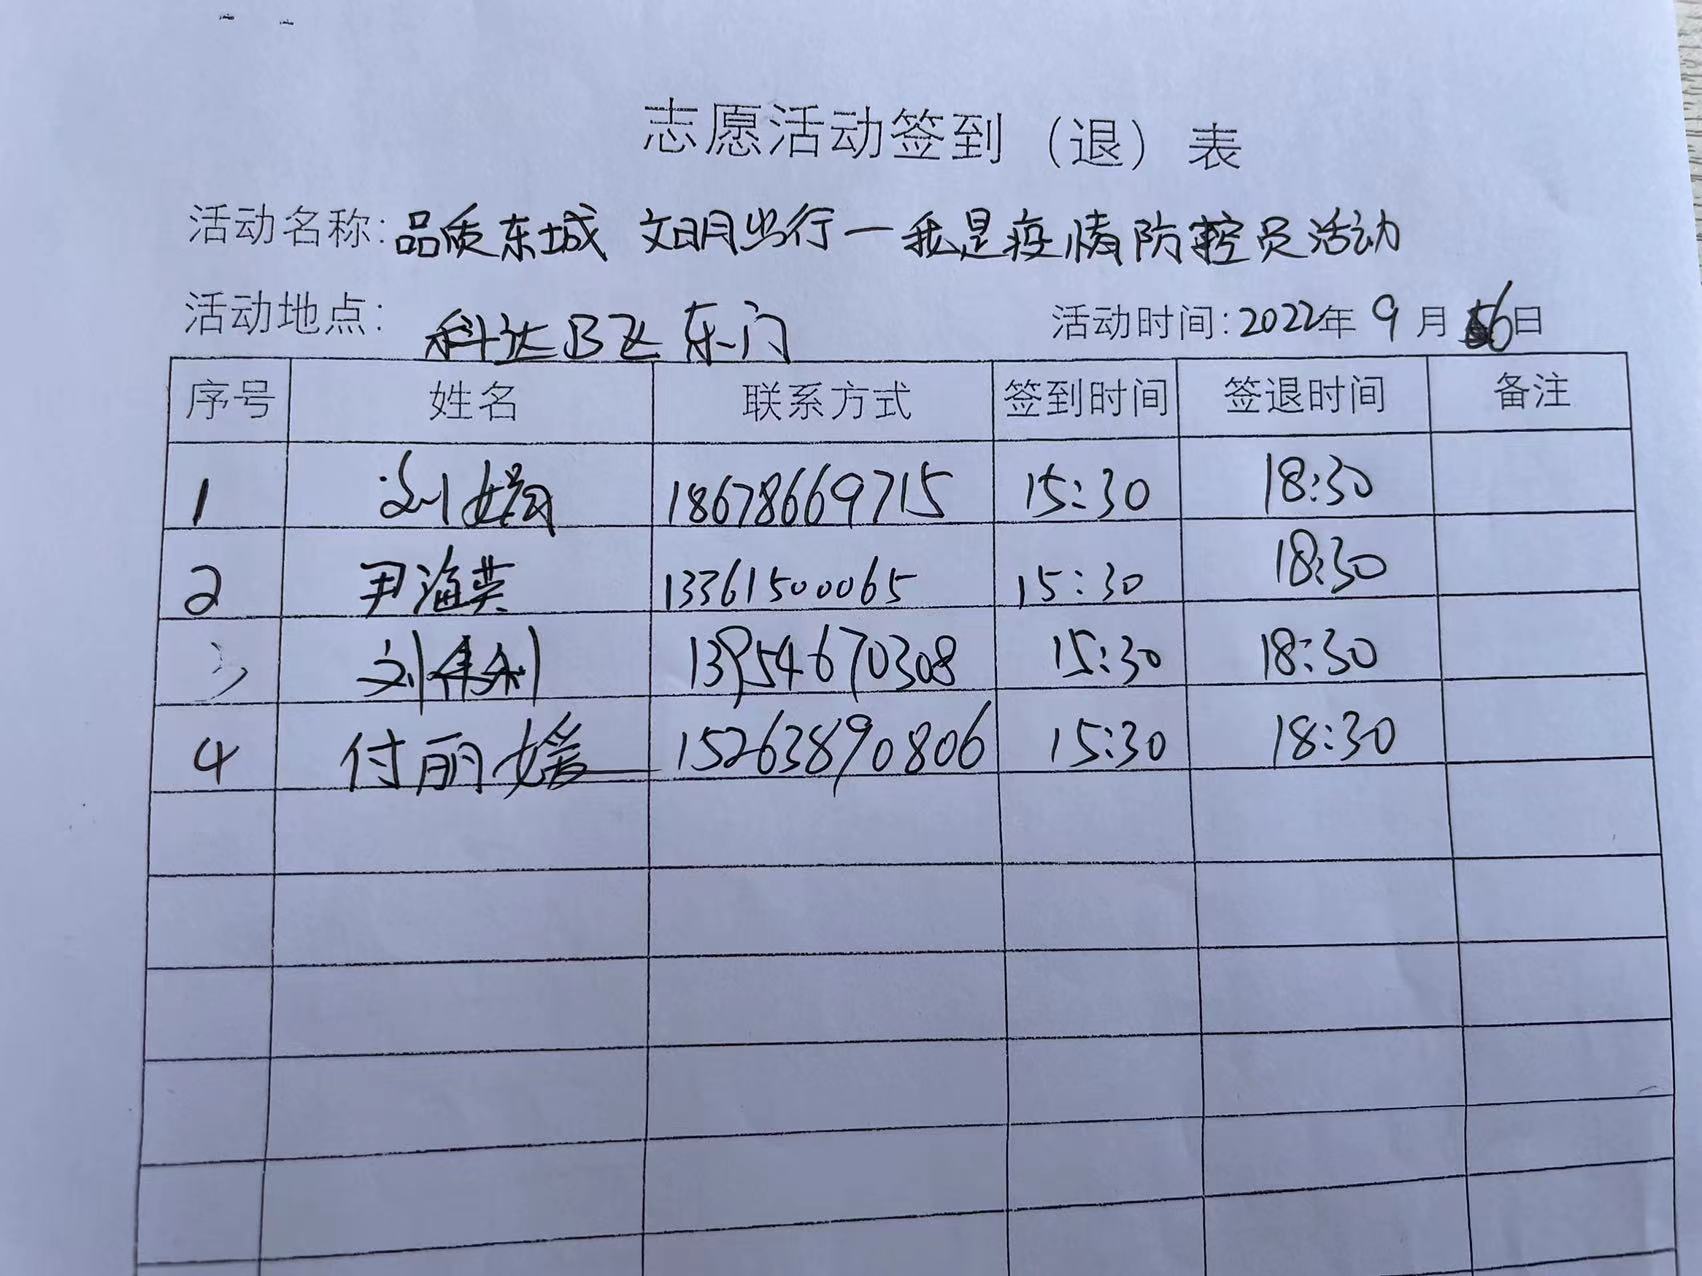 志愿活动签到（退）表
活动名称：品质东城 文明出行一我是疫情防控员活动
活动地点：科达B区东门 活动时间：2022年9月6日
序号 姓名 联系方式 签到时间 签退时间 备注
1 刘娟 18678669715 15:30 18:30
2 尹海英 13361500065 15:30 18:30
3 刘 13954670308 15:30 18:30
4 付丽媛 15263890806 15:30 18:30